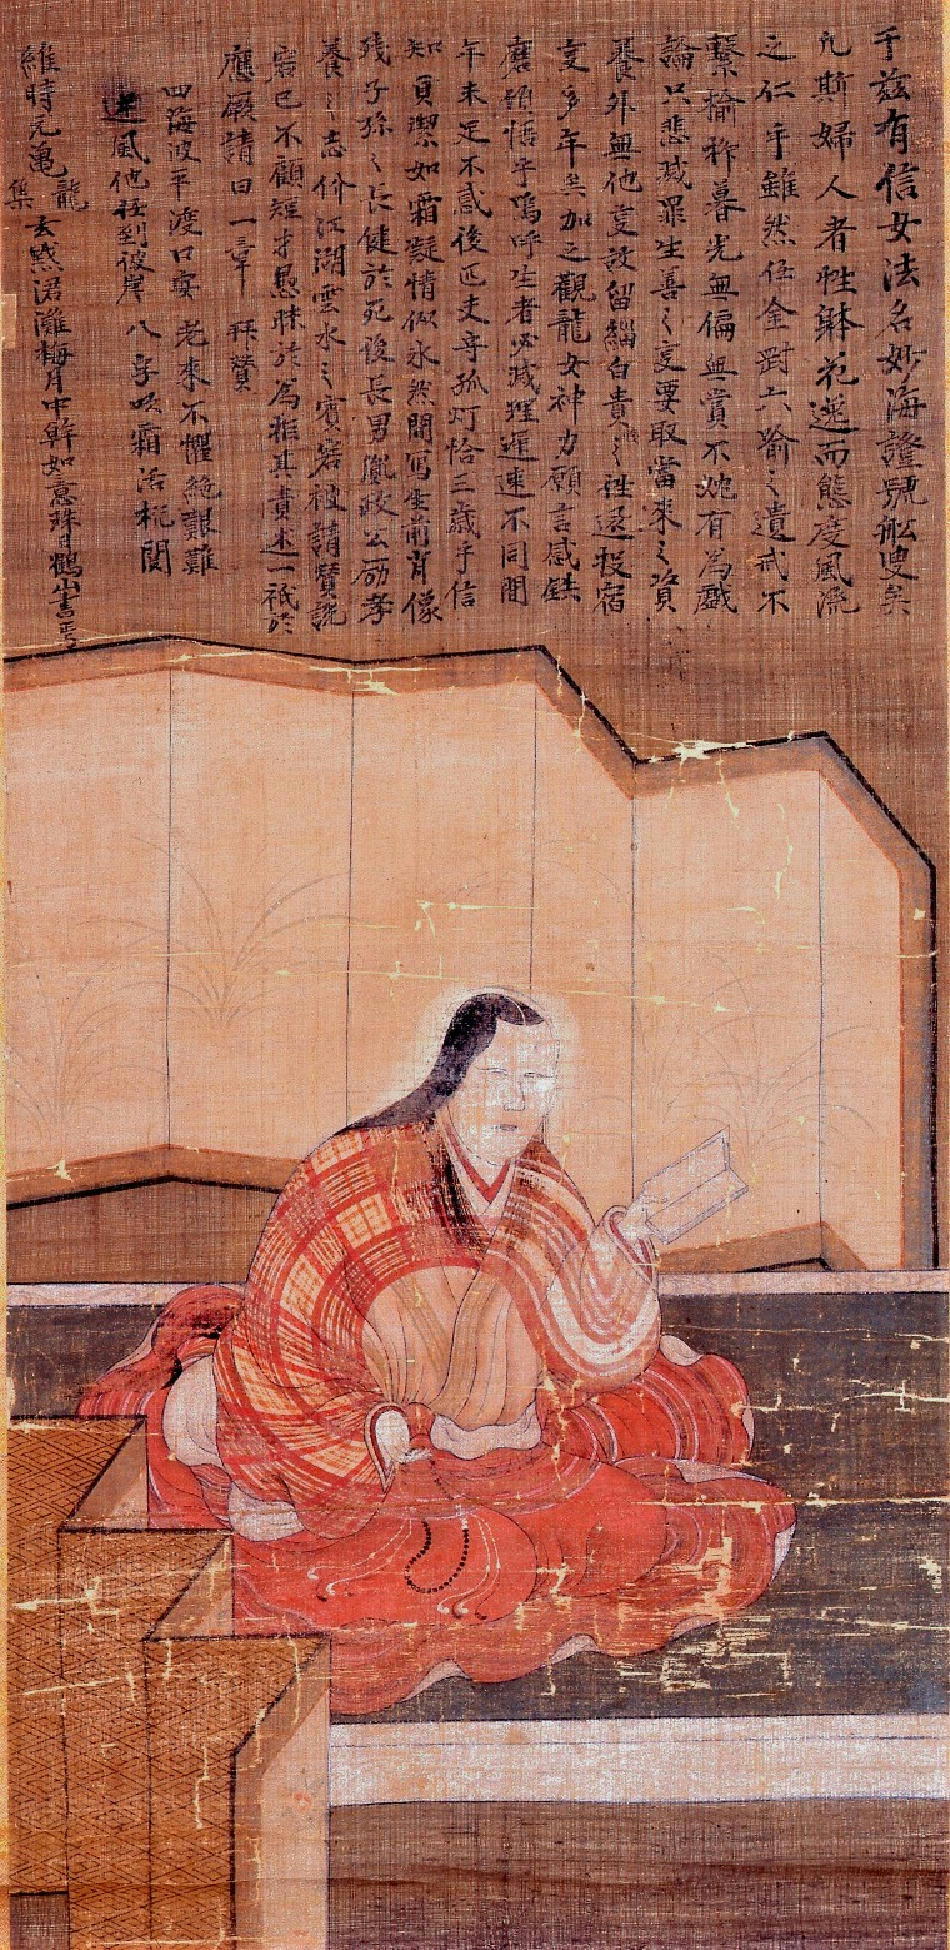 于茲有信女法名妙海證號舩叟矣
凢斯婦人者性躰花逶而態度風流
之仁乎雖然任金對六喩之遺戒不
繫楡柳暮光無偏無賞不 有為戯
論只悲滅罪生善之要取當來之資
養外無他 故留緇白貴之 還投宿
多年矣加之觀龍女神力願言感鉄
磨鏡悟乎嗚呼生者必滅理遲速不同間
年未足不惑後匹夫守孤灯恰三歳乎信
知貞潔如霜凝情似氷然間写生前肖像
残子孫之長健於死後長男胤政公励孝
養之志价江湖雲水之賓若被請賛詞
宕已不顧短才愚昧於為拒其責述一祇於
應厥請曰一章 拜賛
四海波平渡口安 老來不懼絶艱難
逆風他 到彼岸 八字 霜活机関
維時元亀 龍集 玄黙涒灘梅月中幹如意珠日鶴山書焉